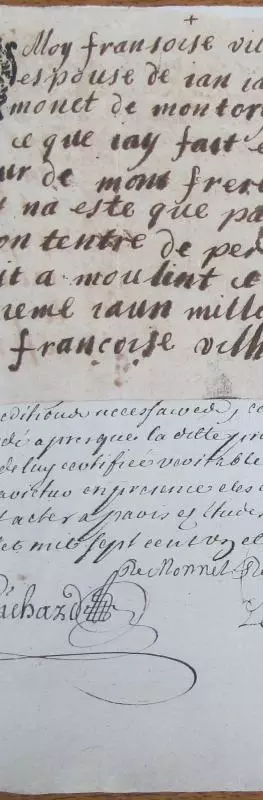 Moy fransoise vil
espouse de ian ia
monet de montor
ce que iay fait e
ur de mont frere
t na este que pa
on tentre de per
it a moulint ce
ieme iaun mille
françoise vill
editions necessaires, co
apres que la ditte pr
de luy certifiée veritable
en presence des
a paris es etudes
et mil sept cent
De Monnel De
Richard